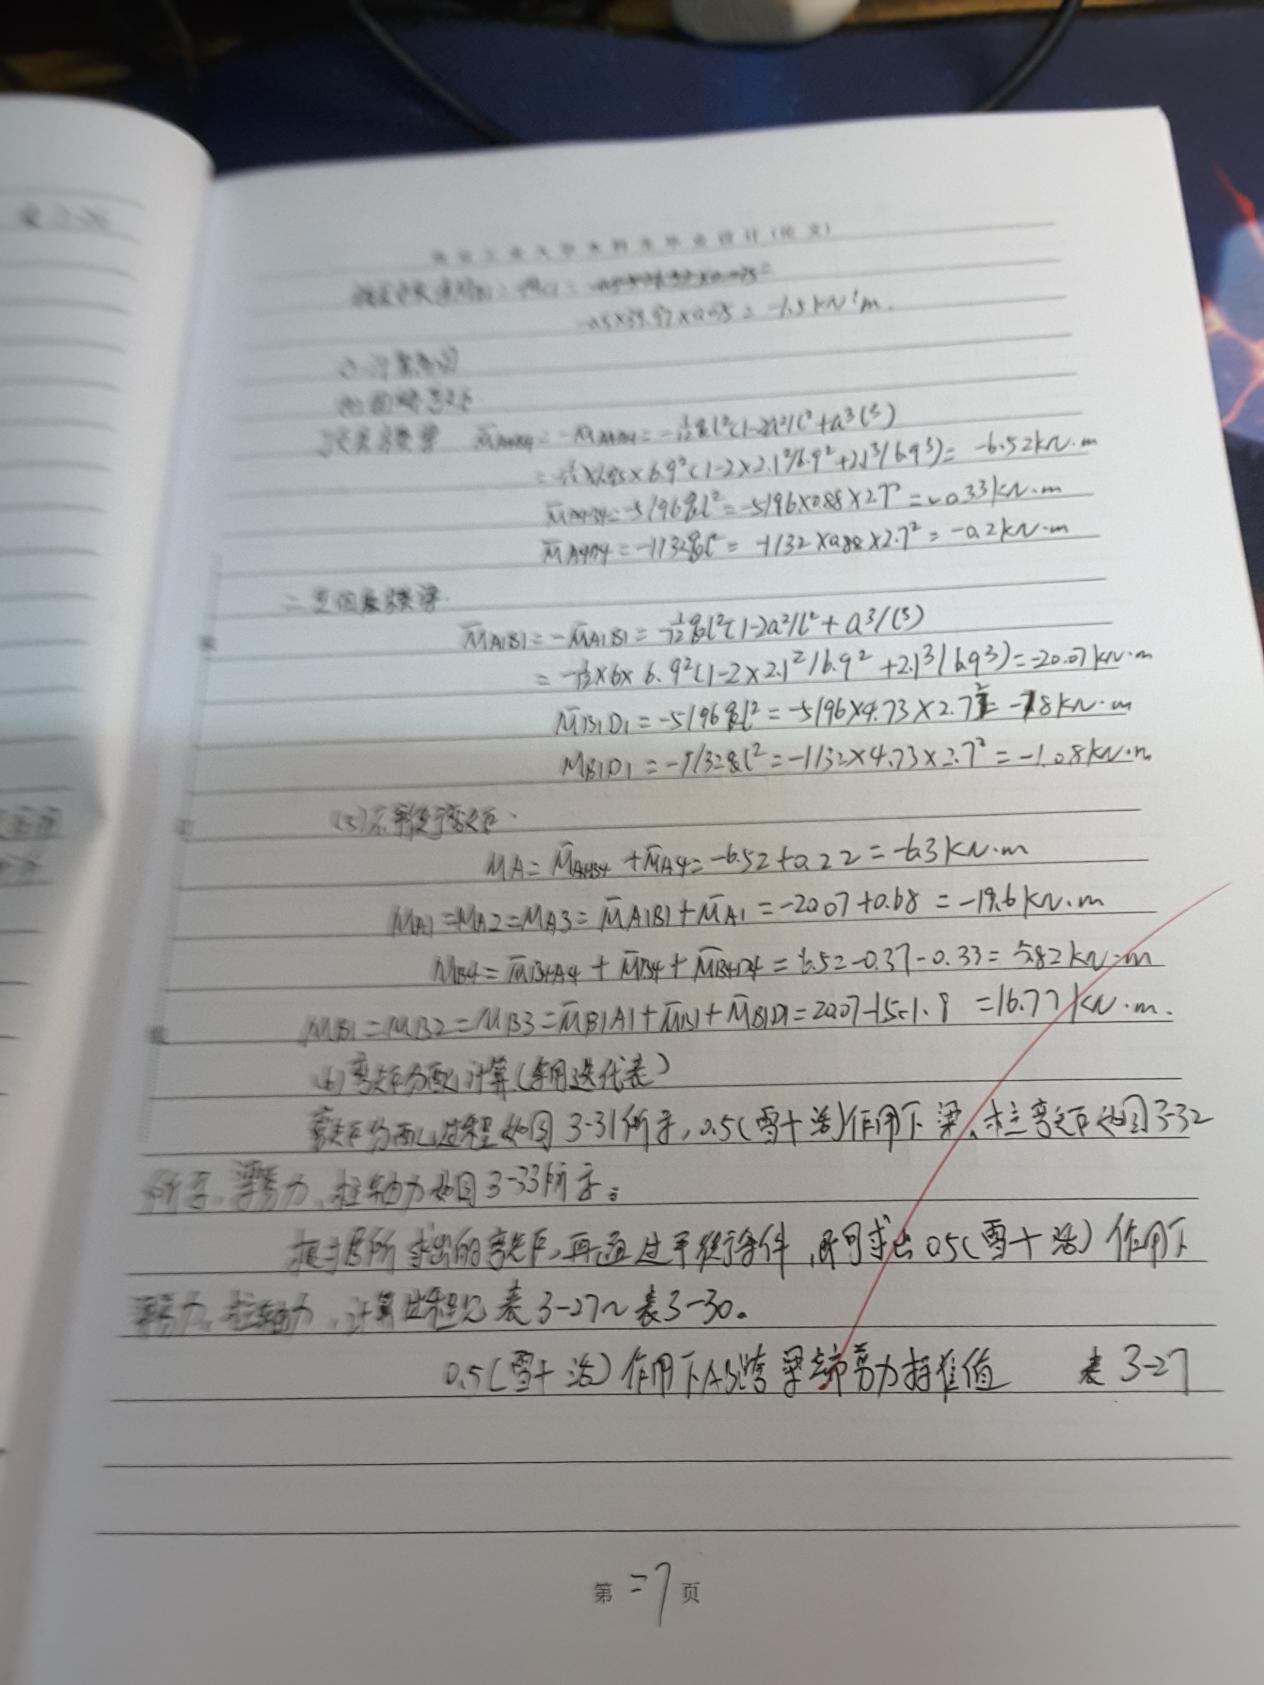 -0.5×39.97×0.075=-1.5kN·m.
M̄A4B4=-M̄A4B4=-1/12ql²(1-2a²/l²+a³/l³)
6.9²(1-2×2.1²/6.9²+2.1³/6.9³)=-6.52kN·m
=-5/96ql²=-5/96×0.88×2.7²=-0.33kN·m
=-1/32ql²=-1/32×0.88×2.7²=-0.2kN·m
M̄A1B1=-M̄A1B1=-1/12ql²(1-2a²/l²+a³/l³)
=-1/12×6×6.9²(1-2×2.1²/6.9²+2.1³/6.9³)=-20.07kN·m
M̄B1D1=-5/96ql²=-5/96×4.73×2.7²=-1.8kN·m
MB1D1=-1/32ql²=-1/32×4.73×2.7²=-1.08kN·m
(5)不平衡弯矩.
MA=M̄A4B4+M̄A4=-6.52+0.22=-6.3kN·m
MA1=MA2=MA3=M̄A1B1+M̄A1=-20.07+0.68=-19.6kN·m
MB4=M̄B4A4+M̄B4+M̄B4D4=6.52-0.37-0.33=5.82kN·m
MB1=MB2=MB3=M̄B1A1+M̄B1+M̄B1D1=20.07-1.5-1.8=16.77kN·m.
(6)弯矩分配计算(采用迭代表)
弯矩分配过程如图3-31所示,0.5(雪+活)作用下梁、柱弯矩如图3-32
所示,梁剪力、柱轴力如图3-33所示。
根据所求出的弯矩,再通过平衡条件,即可求出0.5(雪+活)作用下
剪力,柱轴力,计算过程见表3-27~表3-30。
0.5(雪+活)作用下AB跨梁端剪力标准值 表3-27
第二7页